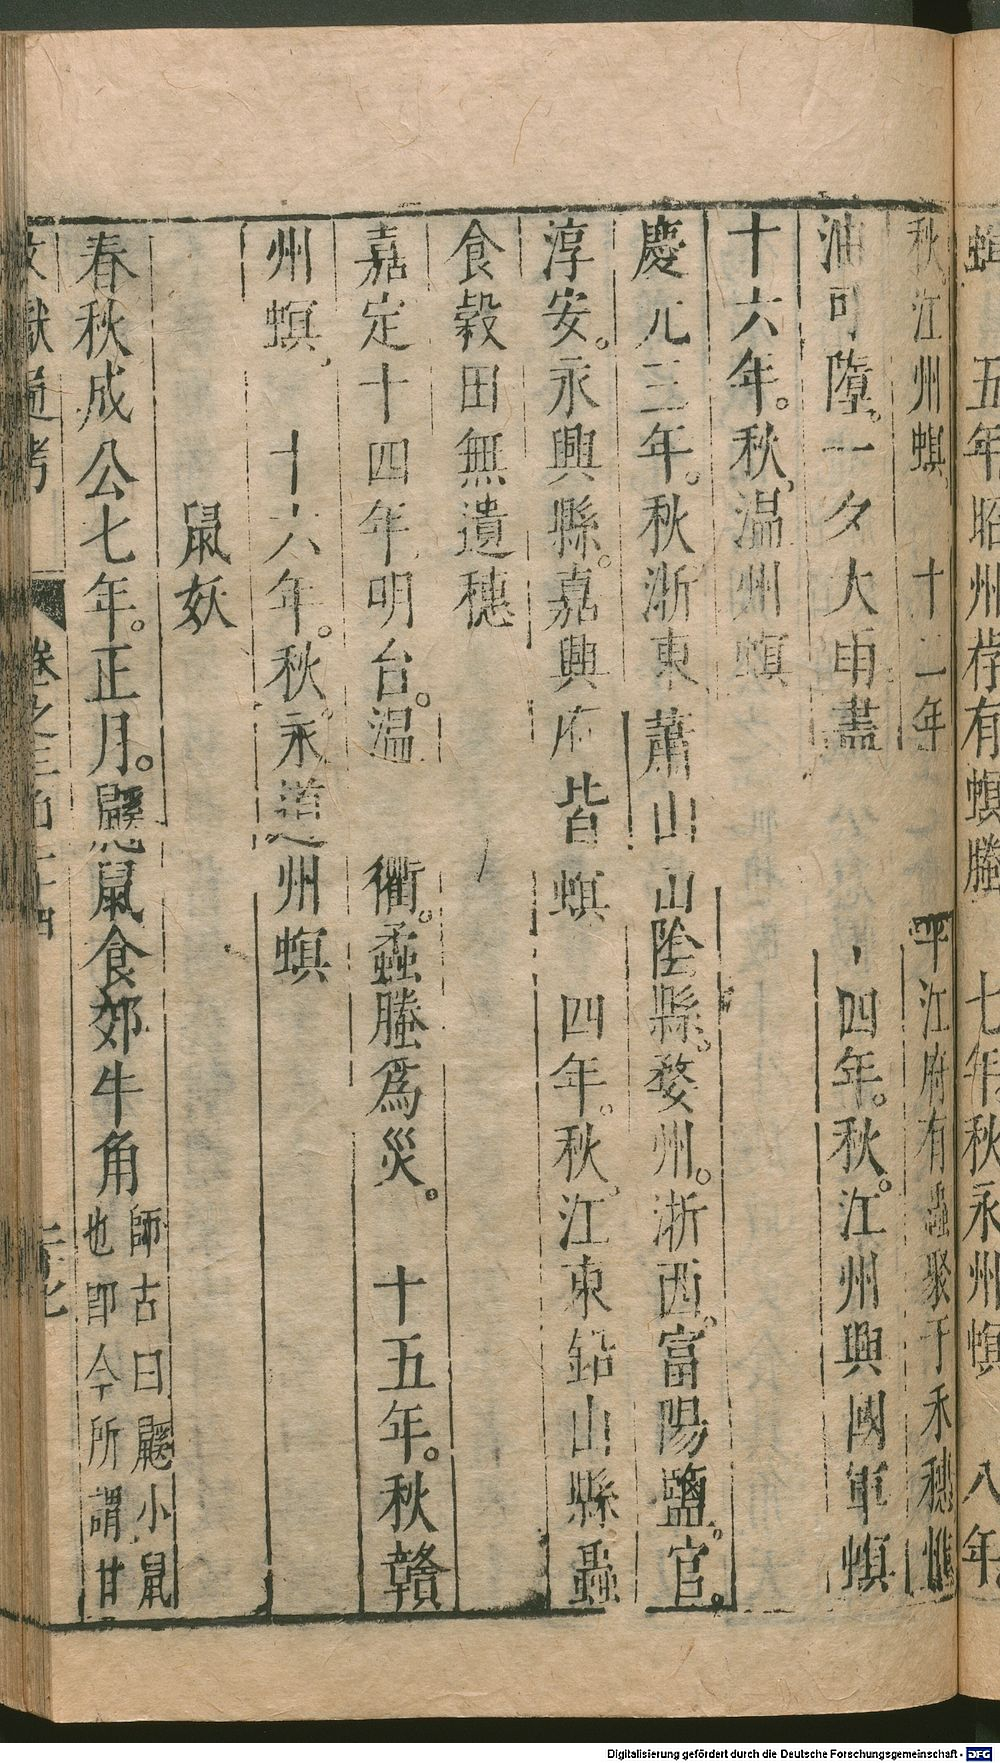 蜞　五年昭州荐有螟螣　七年秋永州螟　八年
秋。江州螟　十二年　平江府有蟲聚于禾穗
油可墮。一夕大雨盡　四年。秋。江州興國軍螟
十六年。秋温州螟
慶元三年。秋浙東蕭山山陰縣。婺州。浙西。富陽鹽。官。
淳安。永興縣。嘉興府皆螟　四年。秋。江東鉛山縣蟲
食穀田無遺穗
嘉定十四年明台。温　衢。蟊螣爲災。　十五年。秋贛
州螟　十六年。秋。永道州螟
鼠妖
春秋成公七年。正月。鼷鼠食郊牛角師古曰鼷小鼠
也即今所謂甘
文獻通考　卷之三百十四
Digitalisierung gefördert durch die Deutsche Forschungsgemeinschaft - DFG